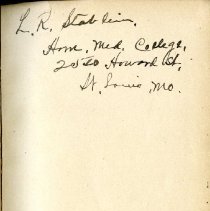 L. R. Stablein.
Hom. Med. College,
Howard St.
St. Louis, Mo.